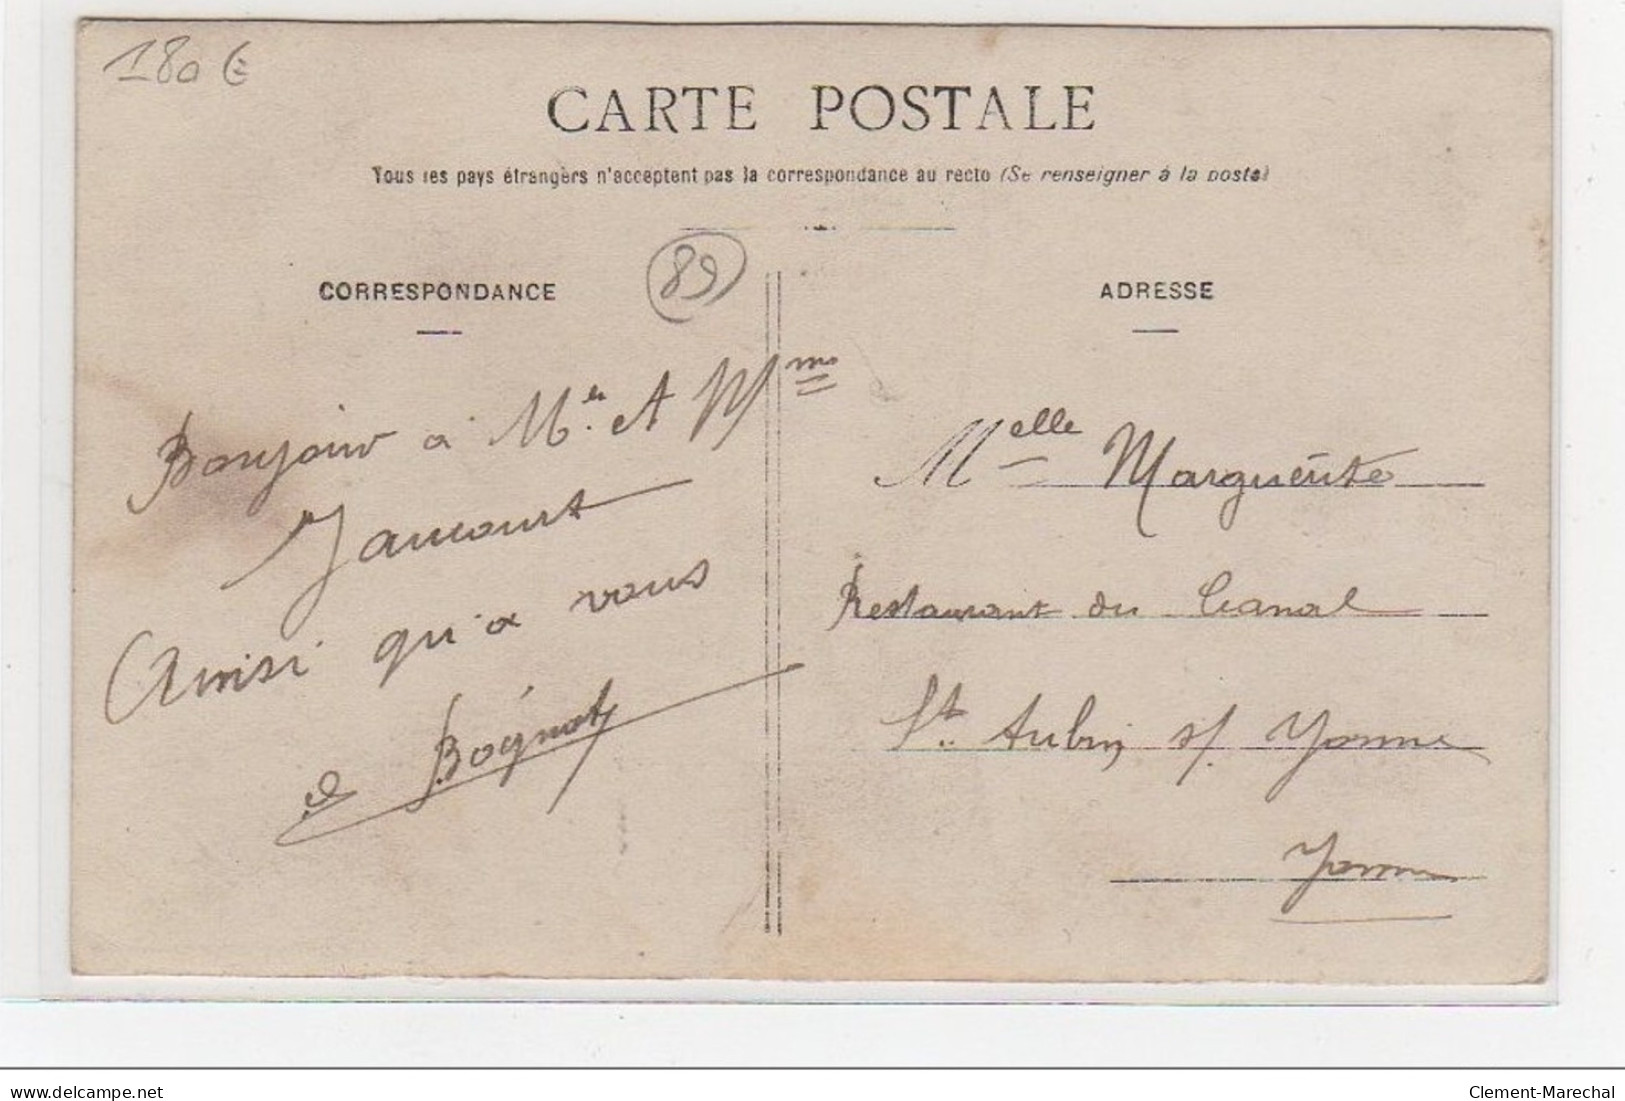 180 €
CARTE POSTALE
Tous les pays étrangers n'acceptent pas la correspondance au recto (Se renseigner á la poste)
89
CORRESPONDANCE
ADRESSE
Bonjour a Mr. et Mme
Jaucourt
Ainsi qu'a vous
Boignot
Melle Marguerite
Restaurant du Canal
St. Aubin s/ Yonne
Yonne
delcampe.net
Clement-Marechal